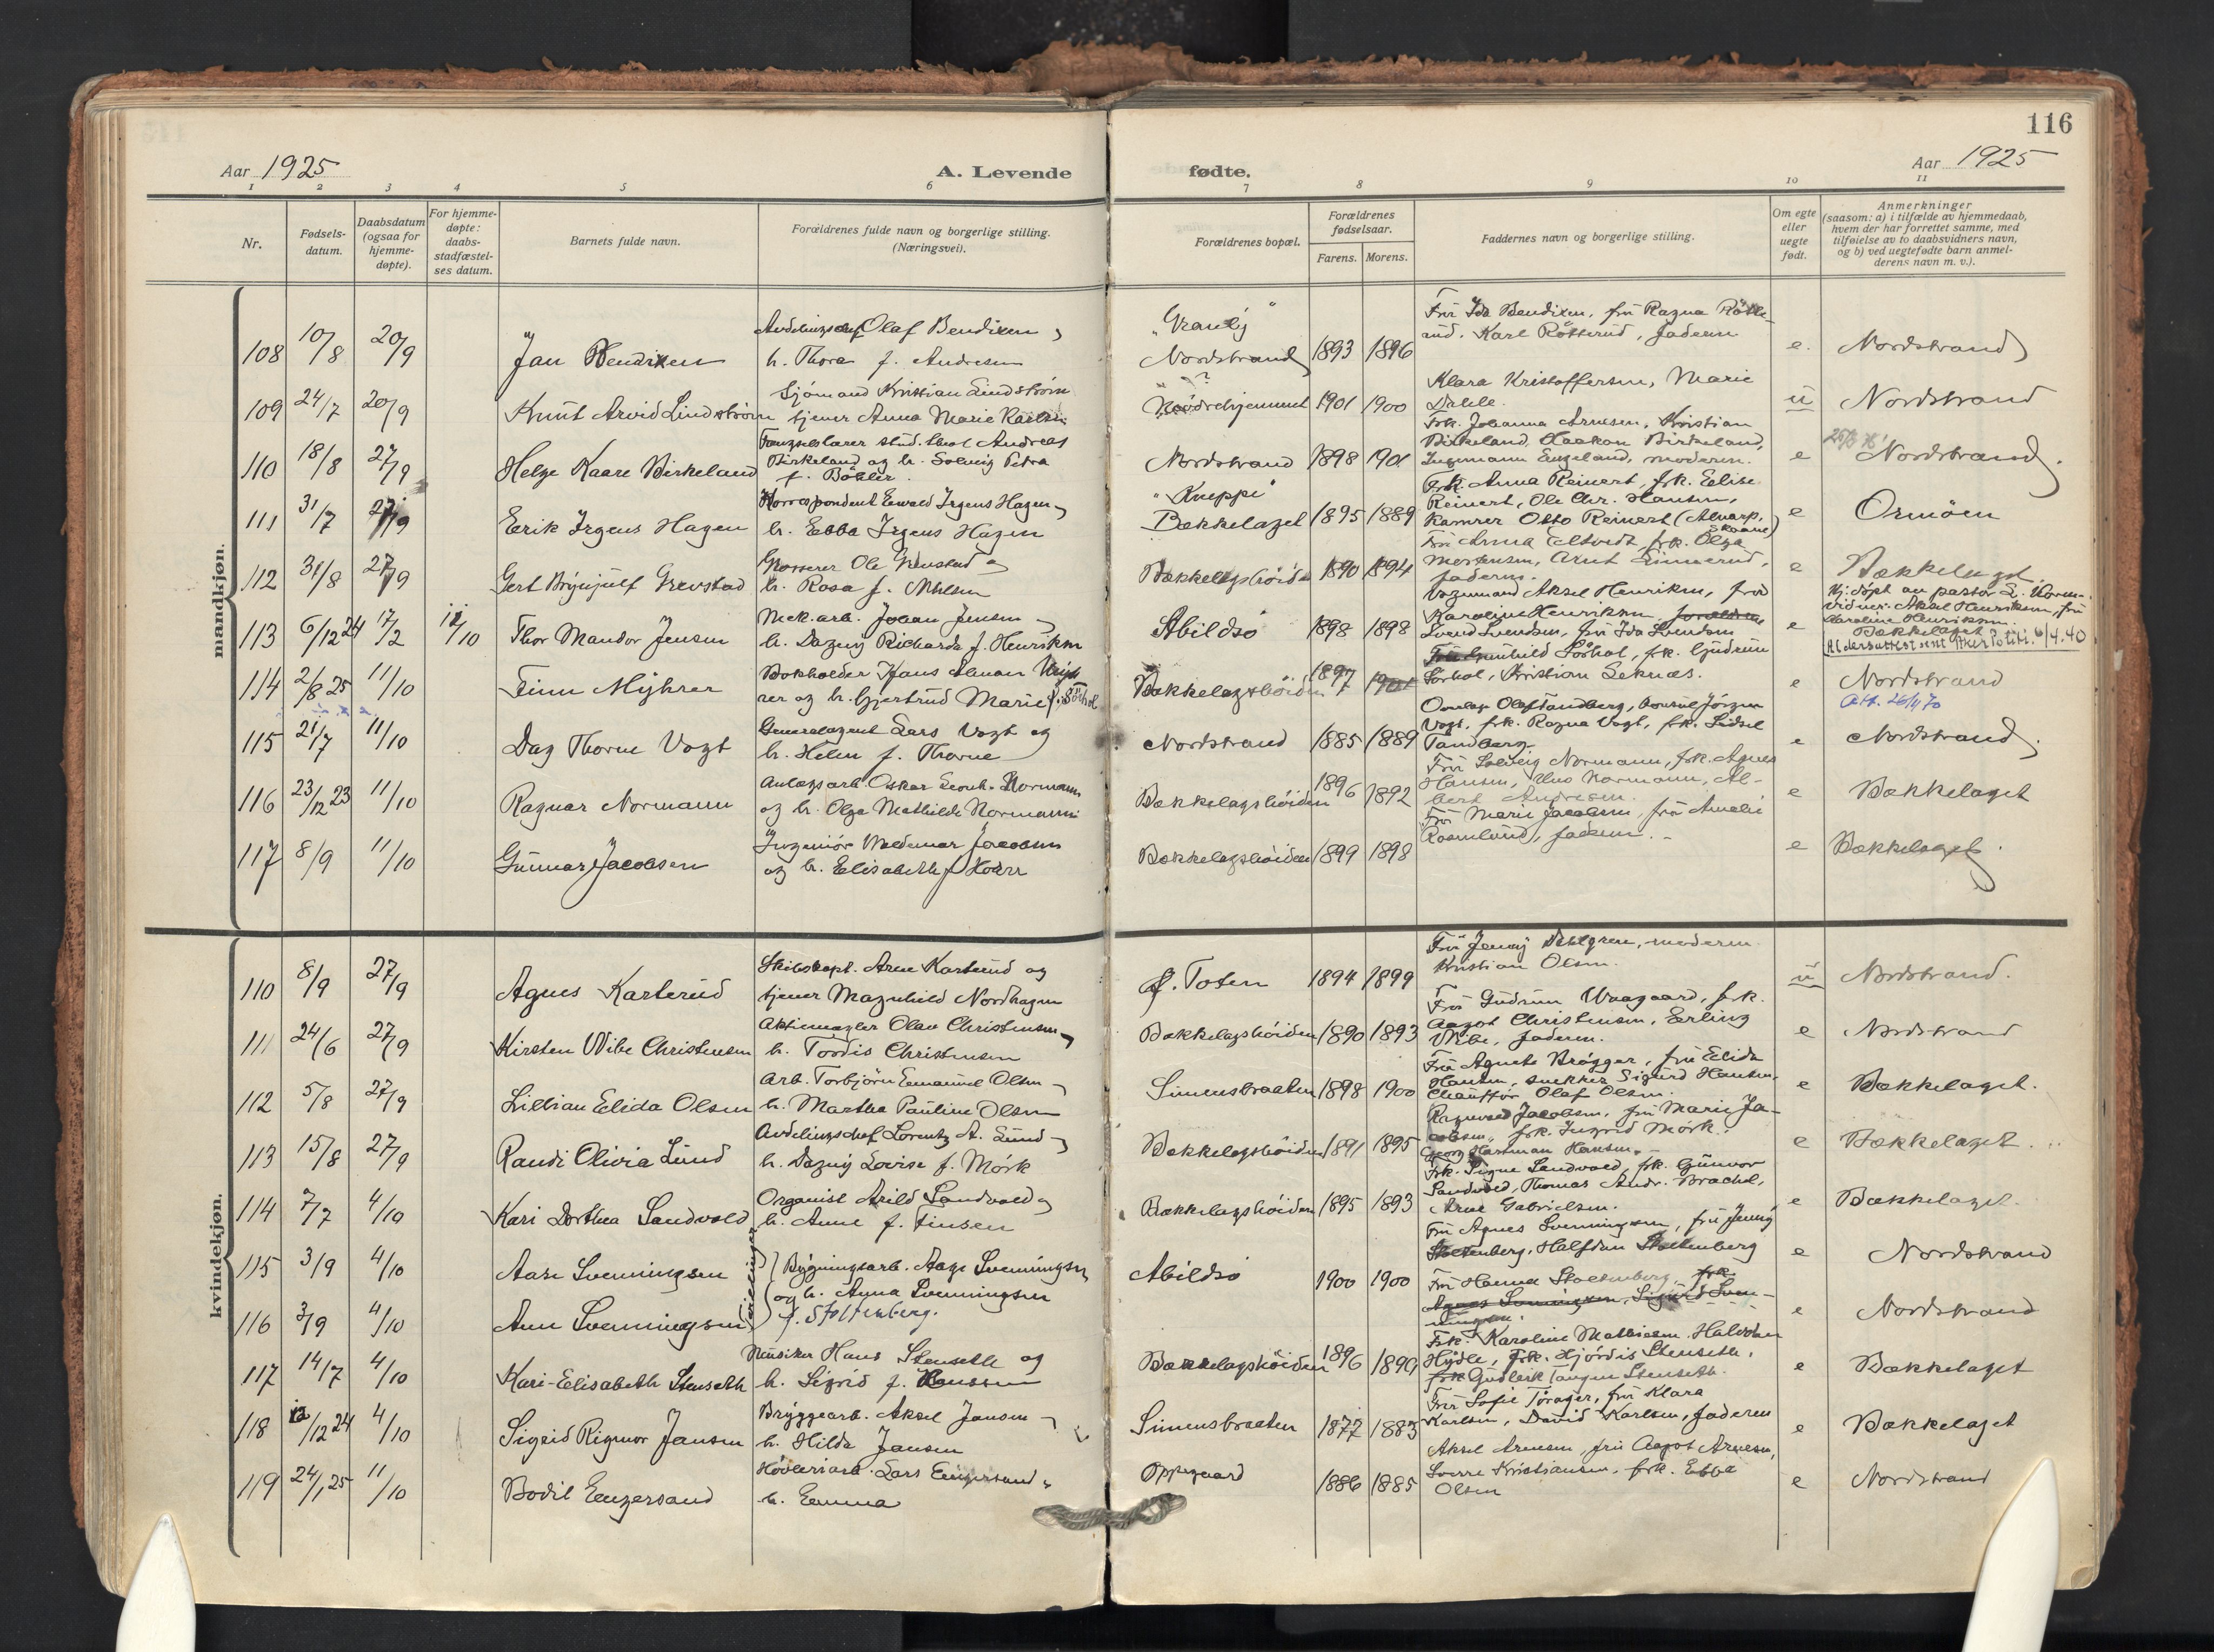 116
Aar 1925
A. Levende
fødte.
Aar 1925
1 2 3 4 5 6 7 8 9 10 11
Nr.
Fødsels-
datum.
Daabsdatum
(ogsaa for
hjemme-
døpte).
For hjemme-
døpte:
daabs-
stadfæstel-
ses datum.
Barnets fulde navn.
Forældrenes fulde navn og borgerlige stilling.
(Næringsvei).
Forældrenes bopæl.
Forældrenes
fødselsaar.
Farens. Morens.
Faddernes navn og borgerlige stilling.
Om egte
eller
uegte
født.
Anmerkninger
(saasom: a) i tilfælde av hjemmedaab,
hvem der har forrettet samme, med
tilføielse av to daabsvidners navn,
og b) ved uegtefødte barn anmel-
derens navn m. v.).
mandkjøn.
108 10/8 20/9 Jan Bendixen
Avdelingschef Olaf Bendixen
h. Thora f. Andresen
"Granly"
Nordstrand 1893 1896
Frü Ida Bendixen, frü Ragna Rötte-
rud, Karl Rötterud, faderen
e. Nordstrand
109 24/7 20/9 Knut Arvid Lindstrøm
Sjømand Kristian Lindstrøm
tjener Anna Marie Karlsen
?
1901 1900
Klara Kristoffersen, Marie
u Nordstrand
110 18/8 27/9 Helge Kaare Birkeland
Fængselslærer stud. theol Andreas
Birkeland og h. Solveig Petra
f. Bøhler
Nordstrand 1898 1901
Frk. Johanna Arnesen, Kristian
Birkeland, Haakon Birkeland,
Ingemann Engeland, moderen.
e Nordstrand
111 31/7 27/9 Erik Irgens Hagen
Korrespondent Ewald Irgens Hagen
h. Ebba Irgens Hagen
"Kneppe"
Bækkelaget 1895 1889
Frk. Anna Reinert, frk. Elise
Reinert, Ole Chr. Hansen,
Kamrer Otto Reinert (Alnarp,
Skaane)
e Ormøen
112 31/8 27/9 Gert Brynjulf Grevstad
Grosserer Ole Grevstad og
h. Rosa f. Nilsen
Bækkelagshöiden 1890 1894
Frü Anna Eltvedt, frk. Olga
Mortensen, Arnt Linnerud,
faderen.
e Bækkelaget
113 6/12 24 17/2 11/10 Thor Mandor Jensen
Mek. arb. Johan Jensen
h. Dagny Richarda f. Henriksen
Abildsø 1898 1898
Vognmand Aksel Henriksen, frü
Karoline Henriksen, foreldrene
Svend Svendsen, frü Ida Svendsen
e
Hj. døpt av pastor
Vidner: Aksel Henriksen, frü
Karoline Henriksen.
Bækkelaget
Aldersattest sent Aker Politi. 6/4.40
114 2/8 25 11/10 Finn Myhrer
Bokholder Hans Myh-
rer og h. Gjertrud Marie f. Sörhol
Bækkelagshöiden 1897 1901
Frü Gunhild Sörhol, frk. Gudrun
Sorhol, Kristian Seknæs.
e Nordstrand
Att. 26/4 70
115 21/7 11/10 Dag Thorne Vogt
Generalagent Lars Vogt og
h. Helen f. Thorne
Nordstrand 1885 1889
Olaf Tandberg, konsul Jörgen
Vogt, frk. Ragna Vogt, frk. Lidsel
Tandberg.
e Nordstrand
116 23/12 23 11/10 Ragnar Normann
Anlægsarb. Oskar Normann
og h. Olga Mathilde Normann
Bækkelagshöiden 1896 1892
Frü Solveig Normann, frk. Agnes
Hansen, Uno Normann, Al-
bert Andresen.
e Bækkelaget
117 8/9 11/10 Gunnar Jacobsen
Ingeniör Waldemar Jacobsen
og h. Elisabeth f. Hoerr
Bækkelagshöiden 1899 1898
Frü Marie Jacobsen, frü Amalie
Rosenlund, faderen.
e Bækkelaget
kvindekjøn.
110 8/9 27/9 Agnes Karterud
Skibskapt. Arne Karterud og
tjener Magnhild Nordhagen
Ø. Toten 1894 1899
Frü Jenny Dahlgren, moderen
Kristian Olsen.
u Nordstrand.
111 24/6 27/9 Kirsten Vibe Christensen
Aktiemægler Olav Christensen
h. Tordis Christensen
Bækkelagshöiden 1890 1893
Frü Gudrun Waagaard, frk.
Aagot Christensen, Erling
Vibe, faderen.
e Nordstrand
112 5/8 27/9 Lillian Elida Olsen
Arb. Torbjörn Emanuel Olsen
h. Martha Pauline Olsen
Simensbraaten 1898 1900
Frü Agnete Brögger, frü Elida
Hansen, snekker Sigurd Hansen,
Chauffør Olaf Olsen.
e Bækkelaget.
113 15/8 27/9 Randi Olivia Lund
Avdelingschef Lorentz A. Lund
h. Dagny Lovise f. Mörk
Bækkelagshöiden 1891 1895
Ragnvald Jacobsen, frü Marie Ja-
cobsen, frk. Ingrid Mörk.
Georg Hartman Hansen.
e Bækkelaget.
114 7/7 4/10 Kari Dorthea Sandvold
Organist Arild Sandvold
h. Anne f. Finsen
Bækkelagshöiden 1895 1893
Frk. Signe Sandvold, frk. Gunvor
Sandvold, Thomas Andr. Brachel,
Arne Gabrielsen.
e Bækkelaget.
115 3/9 4/10 Aase Svenningsen
tvillinger
Bygningsarb. Aage Svenningsen
og h. Anna Svenningsen
f. Stoltenberg.
Abildsø 1900 1900
Frü Agnes Svenningsen, frü Jenny
Stoltenberg, Halfdan Stoltenberg
e Nordstrand
116 3/9 4/10 Ann Svenningsen
Frü Hanna Stoltenberg, frk.
Agnes Svenningsen, Sigurd Sven-
ningsen.
e Nordstrand
117 14/7 4/10 Kari-Elisabeth Stenseth
Musiker Hans Stenseth og
h. Sigrid f. Hanssen
Bækkelagshöiden 1896 1899
Frk. Karoline Mathiesen, Halvdan
Hydle, Frk. Hjördis Stenseth,
frk Gudleik Tangen Stenseth.
e Bækkelaget
118 12/12 24 4/10 Sigrid Rigmor Jansen
Bryggearb. Aksel Jansen
h. Hilda Jansen
Simensbraaten 1877 1883
Frü Sofie Törager, frü Klara
Karlsen, David Karlsen, faderen
e Bækkelaget
119 24/1 25 11/10 Bodil Engersand
Høvleriarb. Lars Engersand
h. Emma
Oppegaard 1886 1885
Aksel Arnesen, frü Aagot Arnesen,
Sverre Kristiansen, frk. Ebba
Olsen
e Nordstrand